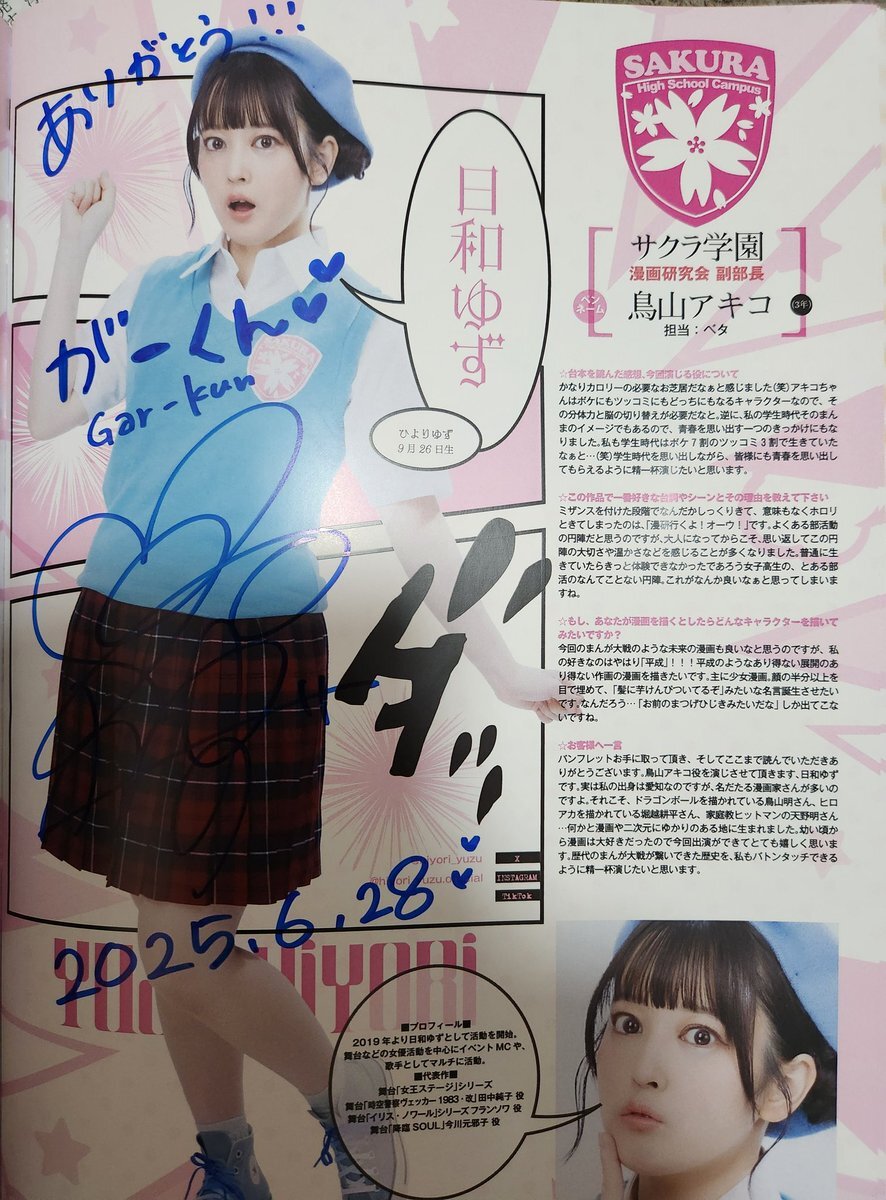 ありがとう!!!
がーくん
Gar-kun
2025.6.28
日和ゆず
ひよりゆず
9月26日生
SAKURA
High School Campus
サクラ学園
漫画研究会 副部長
ペンネーム
鳥山アキコ
(3年)
担当:ベタ
SAKURA
☆台本を読んだ感想、今回演じる役について
かなりカロリーの必要なお芝居だなぁと感じました(笑)アキコちゃ
んはボケにもツッコミにもどっちにもなるキャラクターなので、そ
の分体力と脳の切り替えが必要だなと。逆に、私の学生時代そのまん
まのイメージでもあるので、青春を思い出す一つのきっかけにもな
りました。私も学生時代はボケ7割のツッコミ3割で生きていた
なぁと…(笑)学生時代を思い出しながら、皆様にも青春を思い出し
てもらえるように精一杯演じたいと思います。
☆この作品で一番好きな台詞やシーンとその理由を教えて下さい
ミザンスを付けた段階でなんだかしっくりきて、意味もなくホロリ
ときてしまったのは、「漫研行くよ!オーウ!」です。よくある部活動
の円陣だと思うのですが、大人になってからこそ、思い返してこの円
陣の大切さや温かさなどを感じることが多くなりました。普通に生
きていたらきっと体験できなかったであろう女子高生の、とある部
活のなんてことない円陣。これがなんか良いなぁと思ってしまいま
すね。
☆もし、あなたが漫画を描くとしたらどんなキャラクターを描いて
みたいですか?
今回のまんが大戦のような未来の漫画も良いなと思うのですが、私
の好きなのはやはり「平成」!!!平成のようなあり得ない展開のあ
り得ない作画の漫画を描きたいです。主に少女漫画。顔の半分以上を
目で埋めて、「髪に芋けんぴついてるぞ」みたいな名言誕生させたい
です。なんだろう…「お前のまつげひじきみたいだな」しか出てこな
いですね。
☆お客様へ一言
パンフレットお手に取って頂き、そしてここまで読んでいただきあ
りがとうございます。鳥山アキコ役を演じさせて頂きます、日和ゆず
です。実は私の出身は愛知なのですが、名だたる漫画家さんが多いの
ですよ。それこそ、ドラゴンボールを描かれている鳥山明さん、ヒロ
アカを描かれている堀越耕平さん、家庭教ヒットマンの天野明さん
…何かと漫画や二次元にゆかりのある地に生まれました。幼い頃か
ら漫画は大好きだったので今回出演ができてとても嬉しく思いま
す。歴代のまんが大戦が繋いできた歴史を、私もバトンタッチできる
ように精一杯演じたいと思います。
iyori_yuzu
X
INSTAGRAM
TikTok
HiYORi
■プロフィール■
2019年より日和ゆずとして活動を開始。
舞台などの女優活動を中心にイベントMCや、
歌手としてマルチに活動。
■代表作■
舞台「女王ステージ」シリーズ
舞台「時空警察ヴェッカー1983・改」田中純子 役
舞台「イリス・ノワール」シリーズ フランソワ 役
舞台「降臨SOUL」今川元邪子 役